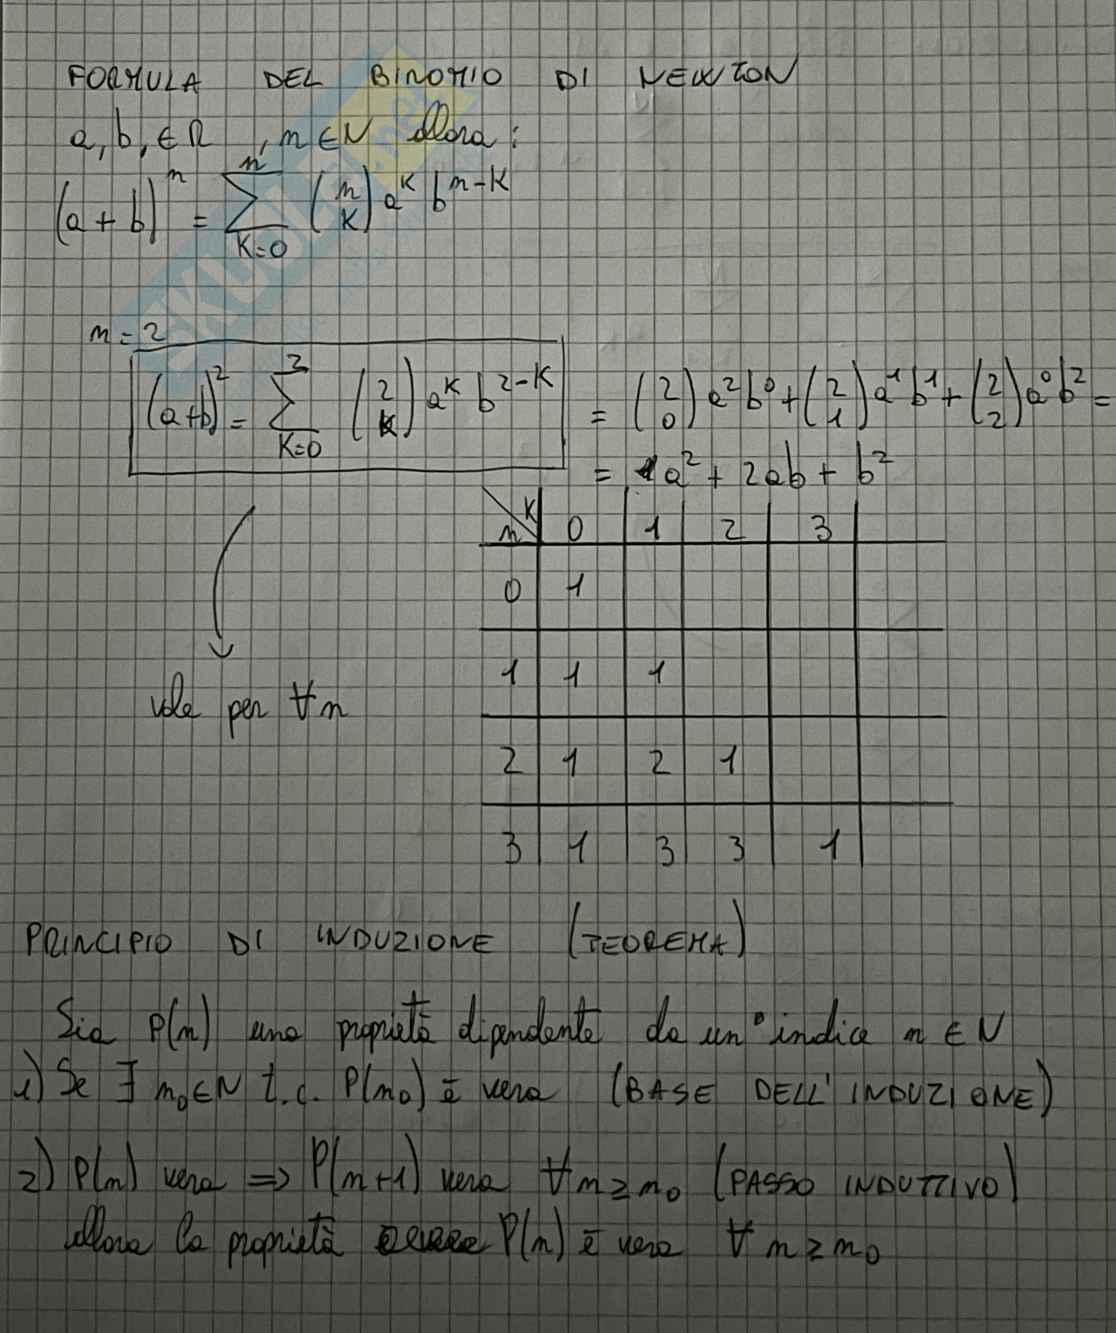 FORMULA DEL BINOMIO DI NEWTON
a, b, ∈ R , n ∈ N allora :
(a + b)^n = ∑_{K=0}^{n} (n K) a^K b^{n-K}
n = 2
(a+b)^2 = ∑_{K=0}^{2} (2 K) a^K b^{2-K} = (2 0) a^2 b^0 + (2 1) a^1 b^1 + (2 2) a^0 b^2 =
= 1a^2 + 2ab + b^2
n K 0 1 2 3
0 1
1 1 1
vale per ∀ n
2 1 2 1
3 1 3 3 1
PRINCIPIO DI INDUZIONE (TEOREMA)
Sia P(n) una proprietà dipendente da un' indice n ∈ N
1) Se ∃ n₀ ∈ N t.c. P(n₀) è vera (BASE DELL' INDUZIONE)
2) P(n) vera => P(n+1) vera ∀ n ≥ n₀ (PASSO INDUTTIVO)
allora la proprietà P(n) è vera ∀ n ≥ n₀